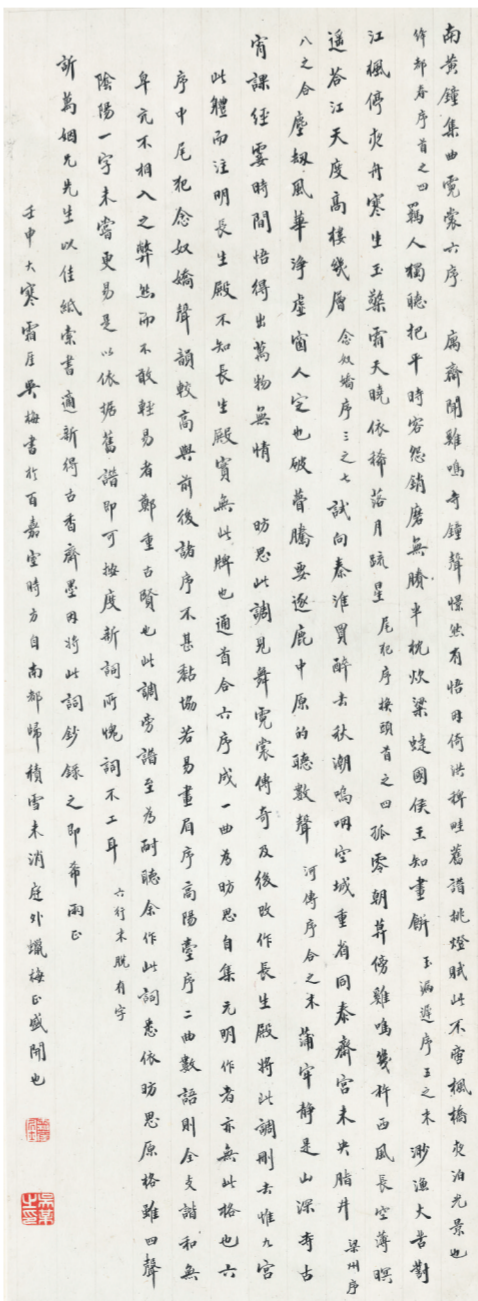 南黃鐘集曲霓裳六序　寓齋聞雞鳴寺鐘聲憬然有悟因倚洪稗畦舊譜挑燈賦此不啻楓橋夜泊光景也
首之四　羈人獨聽把平時客怨銷磨無賸半枕炊粱蟻國侯王知畫餅　玉漏遲序三之末　渺漁火苦對
江楓停夜舟寒生玉藥霜天曉依稀落月疏星　尾犯序換頭首之四　孤零朝莫傍雞鳴幾杵西風長空薄暝
遙答江天度高樓幾層　念奴嬌序三之七　試向秦淮買醉去秋潮嗚咽空城重省同泰齋宮未央脂井　梁州序
八之合　塵劫風華淨虛窗人定也破瞢騰要逐鹿中原的聽數聲　河傳序合之末　蒲牢靜是山深寺古
宵課經要時間悟得出萬物無情　昉思此調見舞霓裳傳奇及後改作長生殿將此調刪去惟九宮
此體而注明長生殿不知長生殿實無此牌也通首合六序成一曲為昉思自集元明作者亦無此格也六
序中尾犯念奴嬌聲韻較高與前後諸序不甚黏協若易畫眉序高陽臺序二曲數語則全支諧和無
卑亢不相入之弊然而不敢輕易者鄭重古賢也此調旁譜至為耐聽余作此詞悉依昉思原格雖四聲
陰陽一字未嘗更易是以依据舊譜即可按度新詞所愧詞不工耳　六行末脫有字
訢萬姻兄先生以佳紙索書適新得古香齋墨因將此詞鈔錄之即希兩正
壬申大寒霜厓吳梅書於百嘉室時方自南都歸積雪未消庭外蠟梅正盛開也